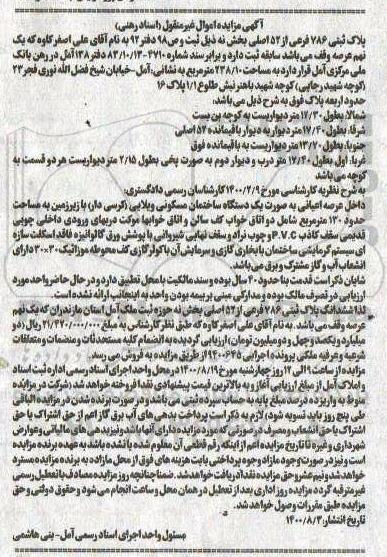 آگهی مزایده اموال غیرمنقول (اسناد رهنی)
پلاک ثبتی ۷۸۶ فرعی از ۵۲ اصلی بخش نه ذیل ثبت و ص۹۸ دفتر ۹۲ به نام آقای علی اصغر کاوه که یک
نهم عرصه وقف می باشد سابقه ثبت دارد و برابر سند شماره ۴۷۱۰-۸۳/۱۰/۱۳ دفتر ۱۳۸ آمل در رهن بانک
ملی مرکزی آمل قرار دارد به مساحت ۲۳۸/۱۰ مترمربع به نشانی: آمل-خیابان شیخ فضل الله نوری فجر۲۳
(کوچه شهید رجایی) کوچه شهید باهنر نبش طلوع ۱/۱ پلاک ۱۶
حدود اربعه پلاک فوق به شرح ذیل می باشد:
شمالا: بطول ۱۲/۳۰ متر دیواریست به کوچه بن بست
شرقا: بطول ۱۷/۴۰ متر دیوار به دیوار باقیمانده ۵۲ اصلی
جنوبا: بطول ۱۳/۷۰ متر دیواریست به باقیمانده فوق
غربا: اول بطول ۱۷/۴۰ متر درب و دیوار دوم به صورت پخی بطول ۲/۱۵ متر دیواریست هر دو قسمت به
کوچه می باشد
به شرح نظریه کارشناسی مورخ ۱۴۰۰/۲/۹ کارشناسان رسمی دادگستری:
داخل عرصه اعیانی به صورت یک دستگاه ساختمان مسکونی ویلایی (کرسی دار) با زیرزمین به مساحت
حدود ۱۳۰ مترمربع شامل دو اتاق خواب کف سالن و اتاق خوابها موکت دربهای ورودی داخلی چوبی
قدیمی سقف کاذب P.V.C و چوب نراد و سقف نهایی شیروانی با پوشش ورق گالوانیزه فاقد اسکلت سازه
ای سیستم گرمایشی ساختمان با بخاری گازی و سرمایش آن با کولر گازی کف محوطه موزائیک ۳۰×۳۰ دارای
انشعاب آب و گاز مشترک و برق می باشد.
شایان ذکر است قدمت بنا حدود ۴۰ سال بوده و سند مالکیت با محل تطبیق دارد و در حال حاضر واحد مورد
ارزیابی در تصرف مالک بوده و مدارکی مبنی بر بیمه بودن واحد به اینجانب ارائه نشده است.
لذا ششدانگ پلاک ثبتی ۷۸۶ فرعی از ۵۲ اصلی بخش نه حوزه ثبت ملک آمل استان مازندران که یک نهم
عرصه وقف می باشد. به نام آقای علی اصغر کاوه که طبق نظر کارشناسی به مبلغ ۲۱/۴۲۰/۰۰۰/۰۰۰ ریال (دو
میلیارد و یکصد و چهل و دو میلیون تومان) ارزیابی گردیده به انضمام کلیه مستحدثات و منضمات و متعلقات
شرعیه و عرفیه ملکی پرونده اجرایی ۱۴۰۰۰۶۴۵ از طریق مزایده به فروش می رسد.
مزایده از ساعت ۹ الی ۱۲ روز چهارشنبه مورخ ۱۴۰۰/۸/۱۹ در محل واحد اجرای اسناد رسمی اداره ثبت اسناد
و املاک آمل از مبلغ ارزیابی آغاز و به بالاترین قیمت پیشنهادی نقدا فروخته خواهد شد (شرکت در مزایده
منوط به واریز ده درصد مبلغ پایه به حساب سپرده ثبتی می باشد و در صورت برنده شدن در مزایده الباقی
طی پنج روز باید تسویه شود) لازم به ذکر است پرداخت بدهی های آب برق گاز اعم از حق اشتراک یا حق
اشتراک یا حق انشعاب و مصرف در صورتی که مورد مزایده دارای آنها باشد و نیز بدهی های مالیاتی و عوارض
شهرداری و غیره تا تاریخ مزایده اعم از اینکه رقم قطعی آن معلوم شده یا نشده باشد به عهده برنده مزایده
است و نیز در صورت وجود مازاد وجوه پرداختی بابت هزینه های فوق از محل مازاد به برنده مزایده مسترد
خواهد شد و نیم عشر و حق مزایده نقدا دریافت خواهد شد. ضمنا چنانچه روز مزایده مصادف با تعطیل رسمی
غیرمترقبه گردد مزایده روز اداری بعد از تعطیل در همان محل و ساعت انجام می شود و حقوق دولتی و حق
مزایده طبق مقررات وصول خواهد شد.
تاریخ انتشار: ۱۴۰۰/۸/۳
مسئول واحد اجرای اسناد رسمی آمل- بنی هاشمی